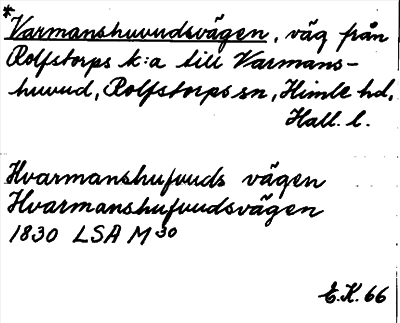 *Varmanshuvudsvägen, väg från
Rolfstorps k:a till Varmans-
huvud, Rolfstorps sn, Himle hd,
Hall. l.
Hvarmanshufvuds vägen
Hvarmanshufvudsvägen
1830 LSA M³⁰
E.K. 66